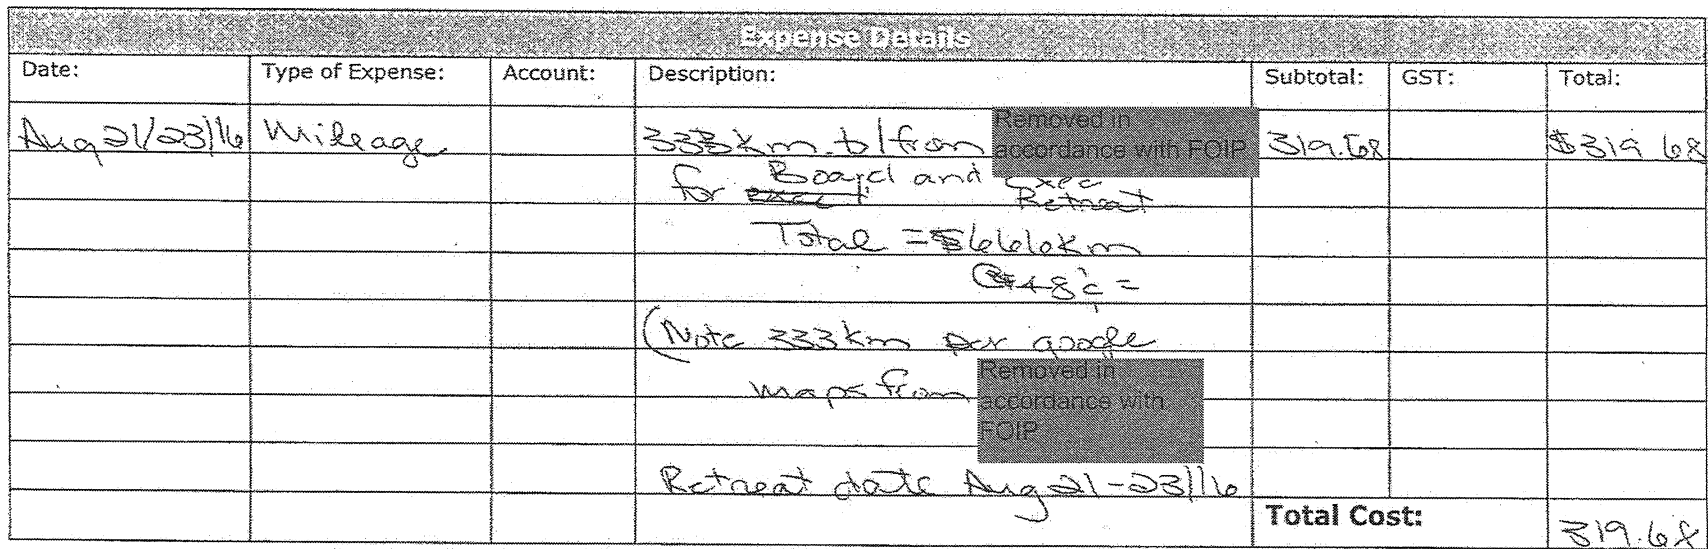 Expense Details
Date: Type of Expense: Account: Description: Subtotal: GST: Total:
Aug 21/23/16 Mileage 333km to/from Removed in accordance with FOIP 319.68 $319.68
for Board and Exec Retreat
Total = 666km
@ 48¢ =
(Note 333km per google
maps from Removed in accordance with FOIP
Retreat date Aug 21-23/16
Total Cost: 319.68